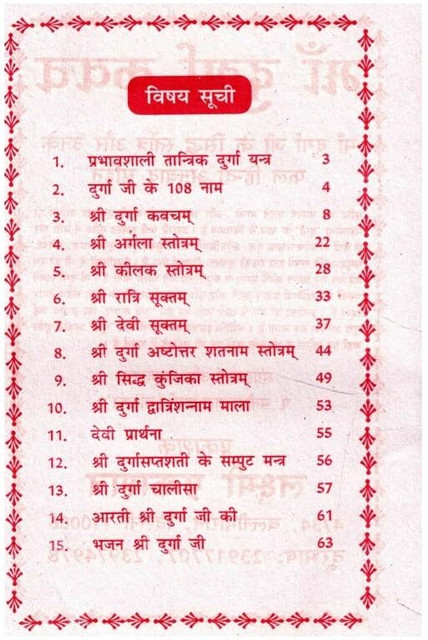 विषय सूची
1. प्रभावशाली तान्त्रिक दुर्गा यन्त्र 3
2. दुर्गा जी के 108 नाम 4
3. श्री दुर्गा कवचम् 8
4. श्री अर्गला स्तोत्रम् 22
5. श्री कीलक स्तोत्रम् 28
6. श्री रात्रि सूक्तम् 33
7. श्री देवी सूक्तम् 37
8. श्री दुर्गा अष्टोत्तर शतनाम स्तोत्रम् 44
9. श्री सिद्ध कुंजिका स्तोत्रम् 49
10. श्री दुर्गा द्वात्रिंशन्नाम माला 53
11. देवी प्रार्थना 55
12. श्री दुर्गासप्तशती के सम्पुट मन्त्र 56
13. श्री दुर्गा चालीसा 57
14. आरती श्री दुर्गा जी की 61
15. भजन श्री दुर्गा जी 63